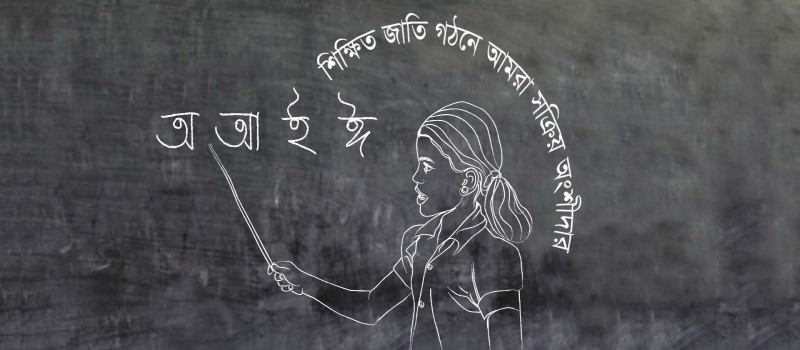 শিক্ষিত জাতি গঠনে আমরা সক্রিয় অংশীদার
অ আ ই ঈ